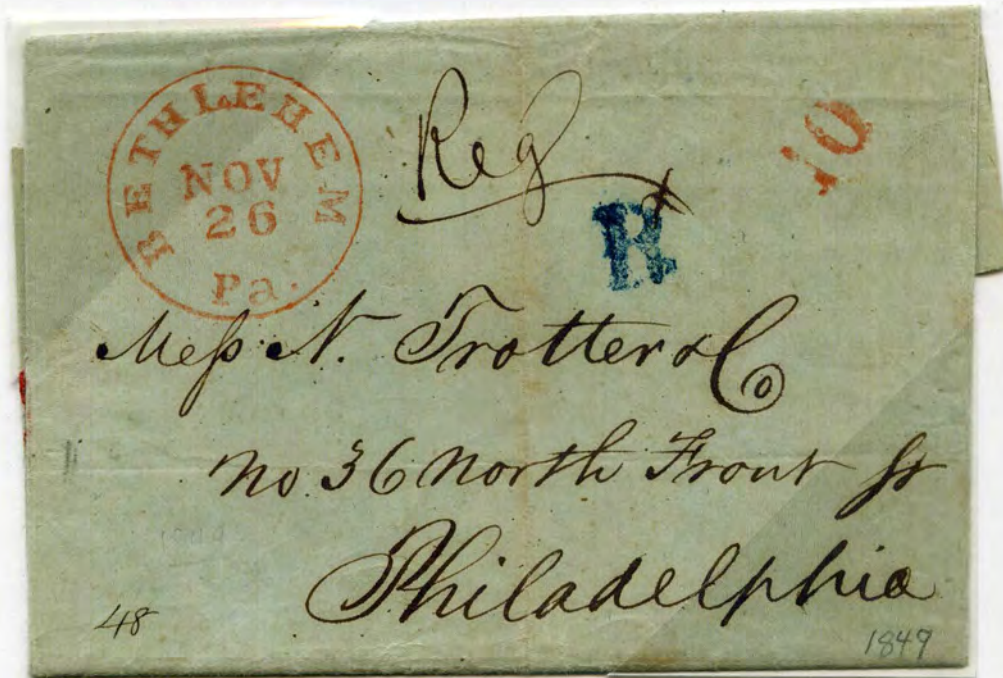 BETHLEHEM
NOV
26
Pa.
Reg
10
R
Mess N. Trotter & Co
No 36 North Front St
Philadelphia
48
1849